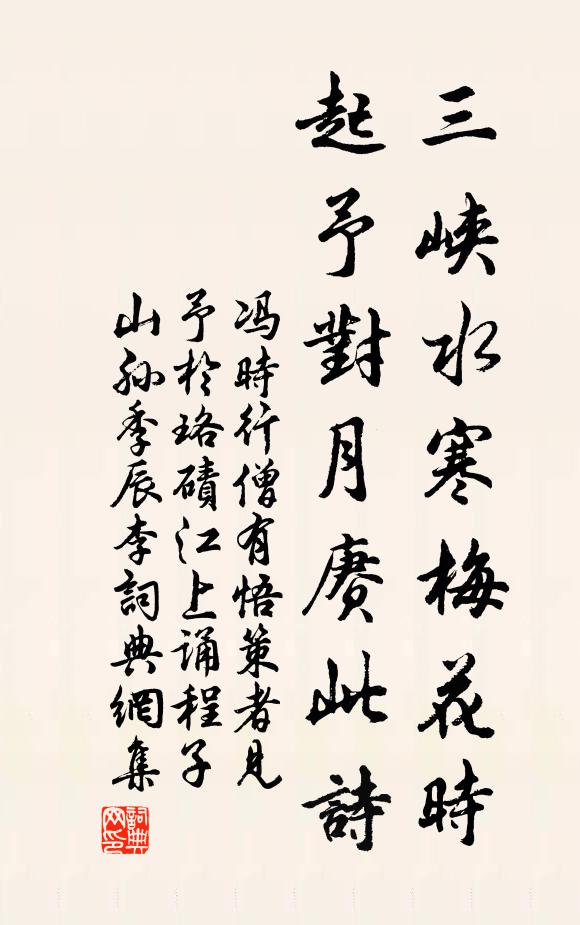 三峽水寒梅花時
起予對月賡此詩
冯時行僧有悟策者見
予於珞磧江上誦程子
山孙季辰李詞典網集
詞典网印